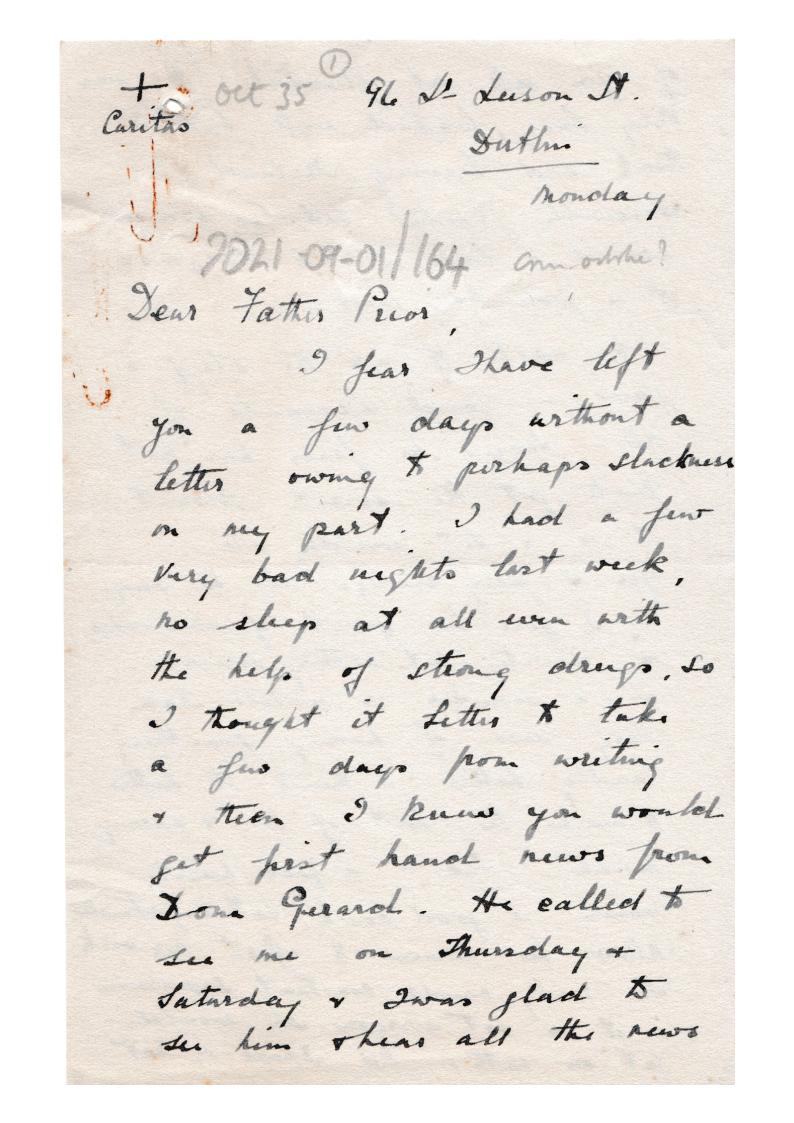 ①
+ Oct 35 96 Lr Leeson St.
Caritas
Dublin
Monday
2021-09-01/164
Dear Father Prior,
I fear I have left
you a few days without a
letter owing to perhaps slackness
on my part. I had a few
very bad nights last week,
no sleep at all even with
the help of strong drugs, so
I thought it better to take
a few days from writing
& then I knew you would
get first hand news from
Dom Gerard. He called to
see me on Thursday &
Saturday & I was glad to
see him & hear all the news